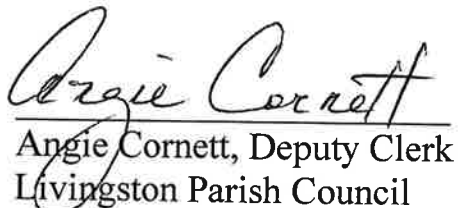 Angie Cornett
Angie Cornett, Deputy Clerk
Livingston Parish Council